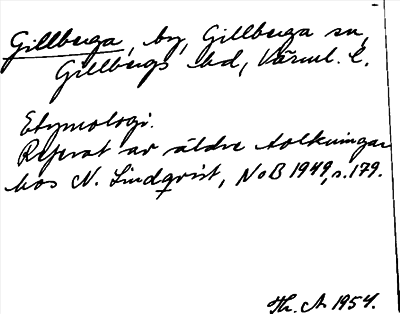 Gillberga, by, Gillberga sn,
Gillbergs hd, Värml. l.
Etymologi.
Referat av äldre tolkningar
hos N. Lindqvist, NoB 1949, s. 179.
Th. A. 1954.